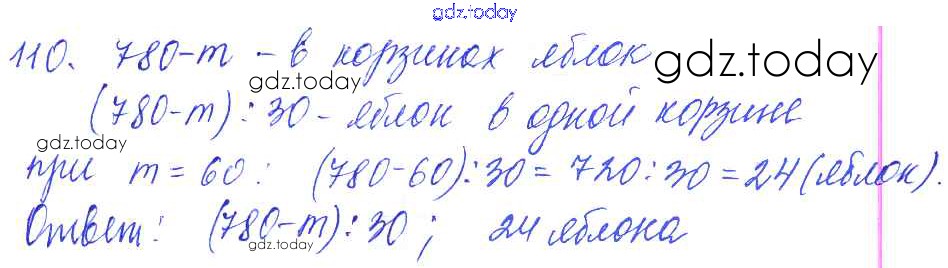 gdz.today
110. 780-m - в корзинах яблок
gdz.today
gdz.today
(780-m) : 30 - яблок в одной корзине
gdz.today
при m = 60 : (780-60) : 30 = 720 : 30 = 24 (яблок).
Ответ: (780-m) : 30 ; 24 яблока
gdz.today
gdz.today